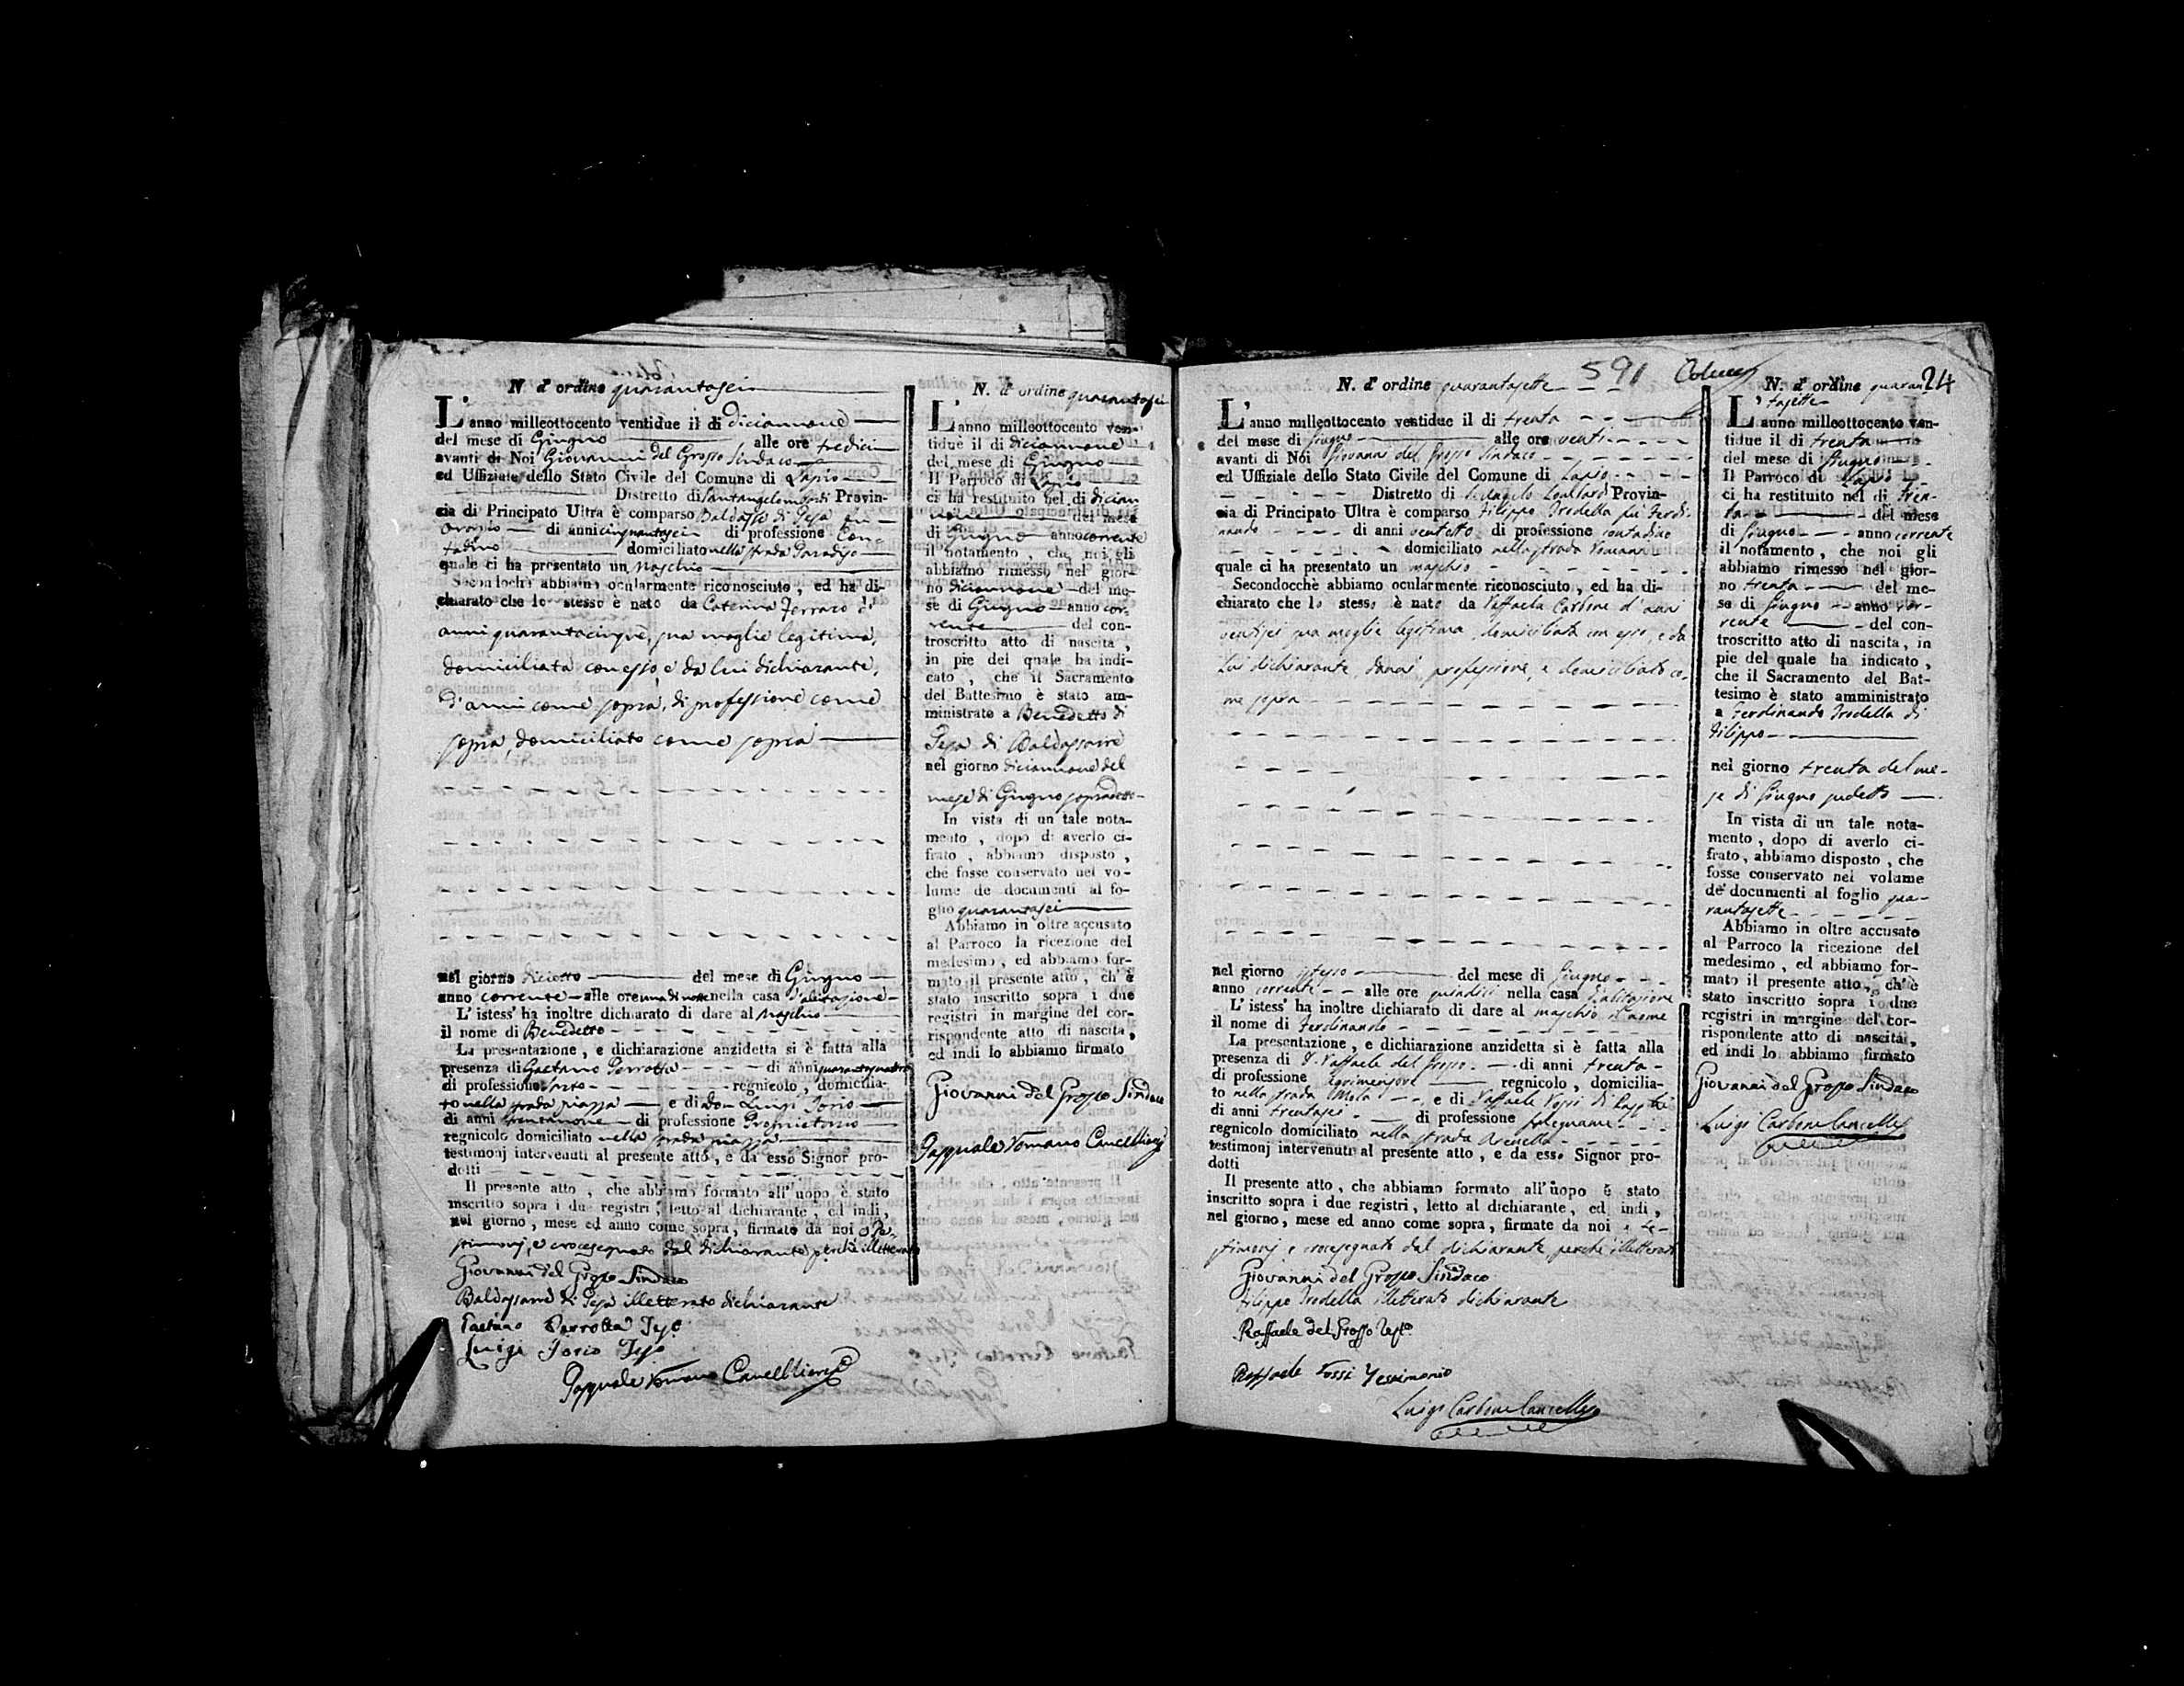 N. d' ordine quarantasei
L' anno milleottocento ventidue il di diciannove
del mese di Giugno alle ore tredici
avanti di Noi Giovanni del Grosso Sindaco
ed Uffiziale dello Stato Civile del Comune di Lapio
Distretto di Santangelo Provin-
cia di Principato Ultra è comparso Baldass.e di Pesa fu
di anni cinquantasei di professione Con-
tadino domiciliato nella strada Paradiso
quale ci ha presentato un Maschio
Secondochè abbiamo ocularmente riconosciuto, ed ha di-
chiarato che lo stesso è nato da Caterina Ferraro d'
anni quarantacinque, sua moglie legitima,
domiciliata con esso, e da lui dichiarante,
d'anni come sopra, di professione come
sopra, domiciliato come sopra
nel giorno diciotto del mese di Giugno
anno corrente alle ore una di notte nella casa d'abitazione
L' istess' ha inoltre dichiarato di dare al Maschio
il nome di Benedetto
La presentazione, e dichiarazione anzidetta si è fatta alla
presenza di Gaetano Perrotta di anni quarantaquattro
di professione Sarto regnicolo, domicilia-
to nella strada piazza e di don Luigi Iorio
di anni trentanove di professione Proprietario
regnicolo domiciliato nella strada piazza
testimonj intervenuti al presente atto, e da esso Signor pro-
dotti
Il presente atto, che abbiamo formato all' uopo è stato
inscritto sopra i due registri, letto al dichiarante, ed indi,
nel giorno, mese ed anno come sopra, firmato da noi e te-
stimonj, e crocesegnato dal dichiarante perchè illetterato
Giovanni del Grosso Sindaco
Baldassarre di Pesa illetterato dichiarante
Gaetano Perrotta Tes.o
Luigi Iorio Tes.o
Pasquale Romano Cancelliere
N. d' ordine quarantasei
L' anno milleottocento ven-
tidue il di diciannove
del mese di Giugno
Il Parroco di Lapio
ci ha restituito nel di dician
nove del mese
di Giugno anno corrente
il notamento, che noi gli
abbiamo rimesso nel gior-
no diciannove del me-
se di Giugno anno cor-
rente del con-
troscritto atto di nascita,
in pie del quale ha indi-
cato, che il Sacramento
del Battesimo è stato am-
ministrato a Benedetto di
Pesa di Baldassarre
nel giorno diciannove del
mese di Giugno sopradetto
In vista di un tale nota-
mento, dopo di averlo ci-
frato, abbiamo disposto,
che fosse conservato nel vo-
lume de documenti al fo-
glio quarantasei
Abbiamo in oltre accusato
al Parroco la ricezione del
medesimo, ed abbiamo for-
mato il presente atto, ch' è
stato inscritto sopra i due
registri in margine del cor-
rispondente atto di nascita,
ed indi lo abbiamo firmato
Giovanni del Grosso Sindaco
Pasquale Romano Cancelliere
591
24
N. d' ordine quarantasette
L' anno milleottocento ventidue il di trenta
del mese di Giugno alle ore venti
avanti di Noi Giovanni del Grosso Sindaco
ed Uffiziale dello Stato Civile del Comune di Lapio
Distretto di S. Angelo Lombardi Provin-
cia di Principato Ultra è comparso Filippo Trodella fu Ferdi-
nando di anni ventotto di professione contadino
domiciliato nella strada
quale ci ha presentato un maschio
Secondocchè abbiamo ocularmente riconosciuto, ed ha di-
chiarato che lo stesso è nato da Raffaela Carbone d' anni
ventisei sua moglie legitima, domiciliata con esso, e da
lui dichiarante, d'anni, professione, e domiciliato co-
me sopra
nel giorno istesso del mese di Giugno
anno corrente alle ore quindici nella casa d'abitazione
L' istess' ha inoltre dichiarato di dare al maschio il nome
il nome di Ferdinando
La presentazione, e dichiarazione anzidetta si è fatta alla
presenza di D. Raffaele del Grosso di anni trenta
di professione Agrimensore regnicolo, domicilia-
to nella strada Mola e di Raffaele Rossi
di anni trentasei di professione falegname
regnicolo domiciliato nella strada Arenella
testimonj intervenuti al presente atto, e da esso Signor pro-
dotti
Il presente atto, che abbiamo formato all' uopo è stato
inscritto sopra i due registri, letto al dichiarante, ed indi,
nel giorno, mese ed anno come sopra, firmato da noi e te-
stimonj e crocesegnato dal dichiarante perchè illetterato
Giovanni del Grosso Sindaco
Filippo Trodella illetterato dichiarante
Raffaele del Grosso Test.o
Raffaele Rossi Testimonio
Luigi Carbone Cancelliere
N. d' ordine quaran
tasette
L' anno milleottocento ven-
tidue il di trenta
del mese di Giugno
Il Parroco di Lapio
ci ha restituito nel di tren-
ta del mese
di Giugno anno corrente
il notamento, che noi gli
abbiamo rimesso nel gior-
no trenta del me-
se di Giugno anno cor-
rente del con-
troscritto atto di nascita, in
pie del quale ha indicato,
che il Sacramento del Bat-
tesimo è stato amministrato
a Ferdinando Trodella di
Filippo
nel giorno trenta del me-
se di Giugno sudetto
In vista di un tale nota-
mento, dopo di averlo ci-
frato, abbiamo disposto, che
fosse conservato nel volume
de' documenti al foglio qua-
rantasette
Abbiamo in oltre accusato
al Parroco la ricezione del
medesimo, ed abbiamo for-
mato il presente atto, ch' è
stato inscritto sopra i due
registri in margine del cor-
rispondente atto di nascita,
ed indi lo abbiamo firmato
Giovanni del Grosso Sindaco
Luigi Carbone Cancelliere